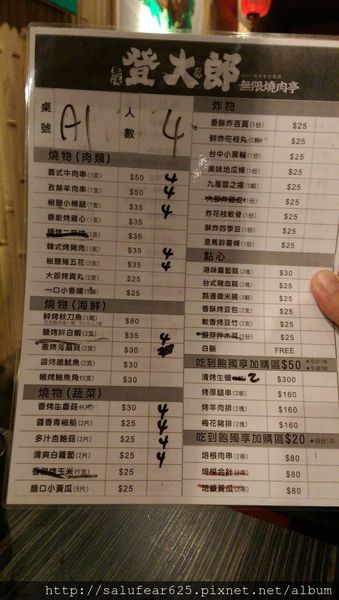 登大郎
無限燒肉亭
桌號 A1
人數 4
燒物(肉類)
義式牛肉串(1支) $50 4
孜然羊肉串(1支) $50 4
椒鹽小棒腿(1支) $35 4
香酥烤雞心(1支) $35
$35
韓式烤豬肉(1支) $35 4
椒鹽豬五花(2支) $35 4
大郎烤貢丸(2支) $25
一口小香腸 $25
燒物(海鮮)
鮮烤秋刀魚(1尾) $80
鹽烤鮮白蝦 $35
$30
醬烤脆魷魚 $30
嫩烤鮑魚角 $30
燒物(蔬菜)
香烤生香菇 $30 4
醬香青椒船(2片) $25 4
多汁杏鮑菇(2片) $25 4
清爽白蘿蔔(2片) $25 4
香甜烤玉米(1支) $25
脆口小黃瓜(5片) $25
炸物
香酥炸百頁(1份) $25
鮮炸花枝丸 $25
台中小黑輪(1份) $25
美味地瓜條(1份) $25
九層塔之塔 $25
$25
炸花枝軟骨(1份) $25
酥炸四季豆(1份) $25
是馬鈴薯條(1份) $25
點心
港味蘿蔔糕(2塊) $30
台式豬血糕(2塊) $25
$25
香酥烤豆包(2支) $25
軟香烤豆竹(2支) $25
$25
白飯 FREE
吃到飽獨享加購區$50
清烤生蠔 2 $300
烤厚腿串(2串) $160
烤羊肉排(2塊) $160
梅花豬排(2塊) $160
吃到飽獨享加購區$20
培根肉串(2串) $80
培根金針(2串) $80
培根黃瓜(2串) $80
http://salufear625.pixnet.net/album